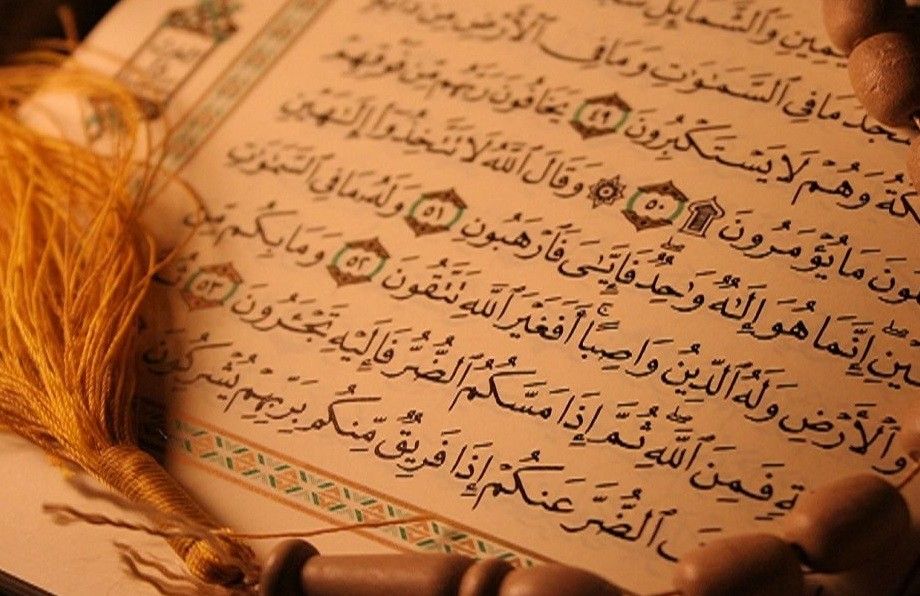 وَٱلشَّمَآئِلِ
مَا فِى ٱلسَّمَٰوَٰتِ وَمَا فِى ٱلْأَرْضِ مِن
وَهُمْ لَا يَسْتَكْبِرُونَ ٤٩ يَخَافُونَ رَبَّهُم مِّن فَوْقِهِمْ
مَا يُؤْمَرُونَ ۩ ٥٠ ۞ وَقَالَ ٱللَّهُ لَا تَتَّخِذُوٓا۟ إِلَٰهَيْنِ
إِنَّمَا هُوَ إِلَٰهٌ وَٰحِدٌ ۖ فَإِيَّٰىَ فَٱرْهَبُونِ ٥١ وَلَهُۥ مَا فِى ٱلسَّمَٰوَٰتِ
وَٱلْأَرْضِ وَلَهُ ٱلدِّينُ وَاصِبًا ۚ أَفَغَيْرَ ٱللَّهِ تَتَّقُونَ ٥٢ وَمَا بِكُم مِّن
فَمِنَ ٱللَّهِ ۖ ثُمَّ إِذَا مَسَّكُمُ ٱلضُّرُّ فَإِلَيْهِ تَجْـَٔرُونَ ٥٣
ٱلضُّرَّ عَنكُمْ إِذَا فَرِيقٌ مِّنكُم بِرَبِّهِمْ يُشْرِكُونَ